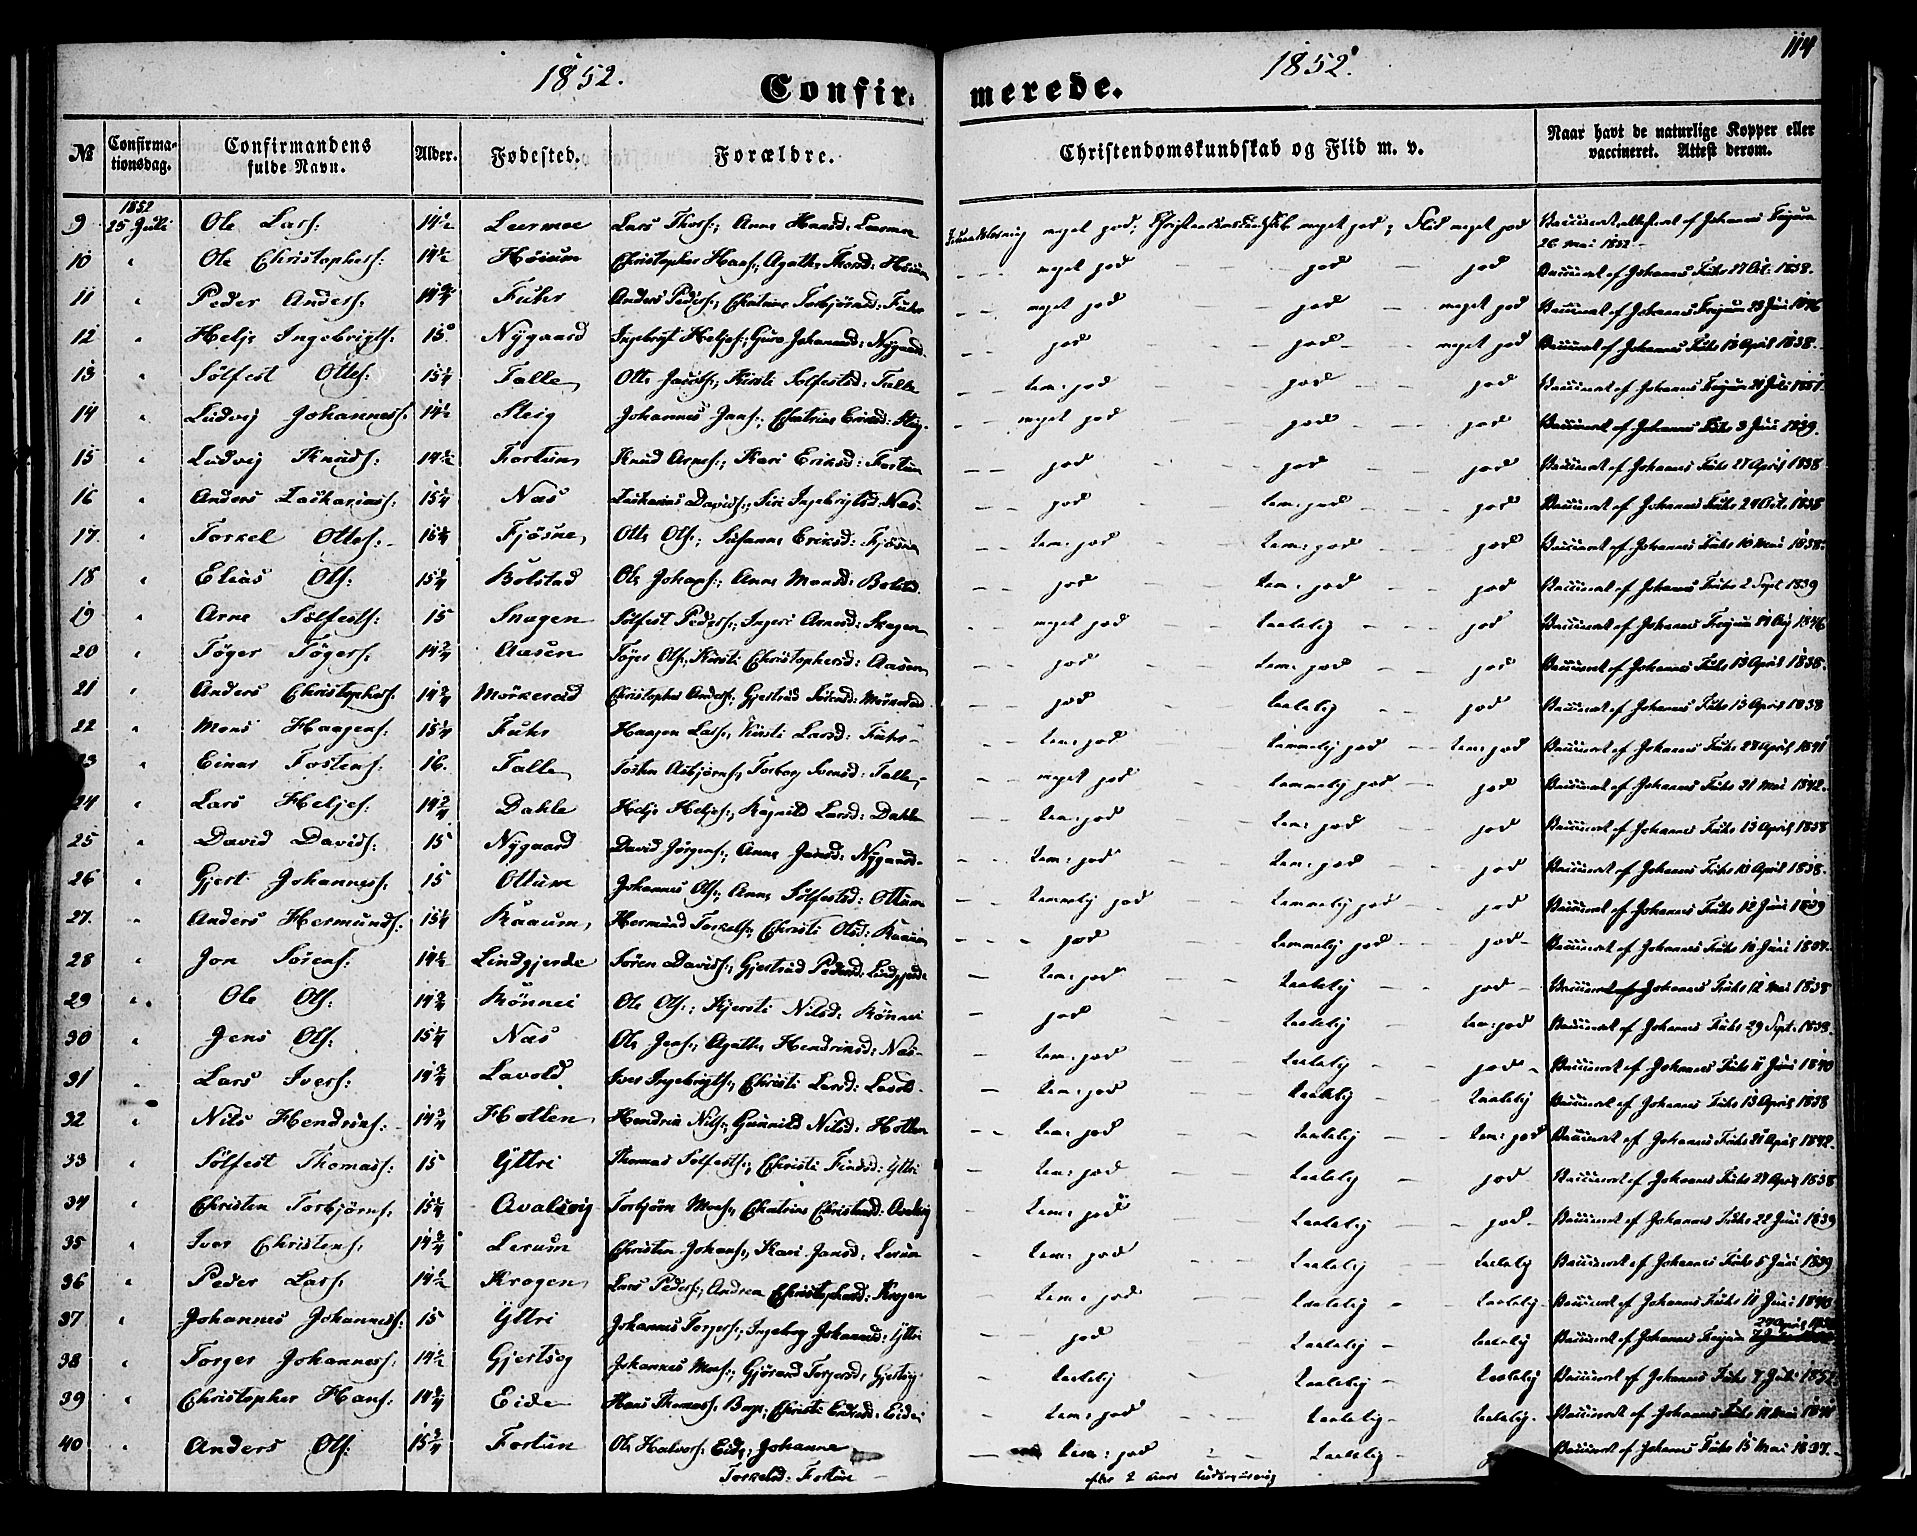 1852.
Confir-
1852.
merede.
114
№ Confirmationsdag. Confirmandens fulde Navn. Alder. Fødested. Forældre. Christendomskundskab og Flid m. v. Naar havt de naturlige Kopper eller vaccineret. Attest derom.
1852
9 25 Juli Ole Lars: 14½ Leermoe Lars Thors:, Anna Hansd: Leermoe meget god; Christendomskundskab meget god; Flid meget god Vaccineret attesteret af Johannes Feigum
26 Mai 1852
10 " Ole Christophers: 14½ Høium Christopher Hans:, Agathe Thord: Høium — meget god — god — god Vaccineret af Johannes Fuhr 17 Oct. 1838.
11 " Peder Anders: 14¾ Fuhr Anders Peders:, Chatrine Torbjørnsd: Fuhr — meget god — god — meget god Vaccineret af Johannes Feigum 23 Juni 1846
12 " Helje Ingebrigts: 15 Nygaard Ingebrigt Heljes:, Guro Johannesd: Nygaard — god — god — meget god Vaccineret af Johannes Fuhr 13 April 1838.
13 " Sølfest Ottes: 15¼ Talle Otte Jacobs:, Kirsti Solfestsd: Talle — tem: god — god — god Vaccineret af Johannes Feigum Juli
14 " Ludvig Johanness: 14½ Steig Johannes Jens:, Chatrine Eriksd: Steig. — meget god — god — god Vaccineret af Johannes Fuhr 3 Juni 1839.
15 " Ludvig Knuds: 14½ Fortun Knud Arnes:, Kari Eriksd: Fortun — god — god — god Vaccineret af Johannes Fuhr 27 April 1838
16 " Anders Zacharias: 15¼ Næs Zacharias Davids:, Siri Ingebrigtsd: Næs — god — tem: god — god Vaccineret af Johannes Fuhr 24 Oct. 1838
17. " Torkel Ottes: Fjøsne Otte Ols:, Susanne Eriksd: Fjøsne — tem: god — tem: god — god Vaccineret af Johannes Fuhr 10 Mai 1838.
18 " Elias Ols: Bolstad Ole Johans:, Anne Monsd: Bolstad — god — tem: god — god Vaccineret af Johannes Fuhr 2 Sept 1839
19 " Arne Sølfests: 15 Skagen Sølfest Peders:, Ingeri Arnesd: Skagen — meget god — taalelig — god Vaccineret af Johannes Feigum 1846
20 " Tøger Tøgers: 14¾ Aasen Tøger Ols:, Kirsti Christophersd: Aasen — god — tem: god — god Vaccineret af Johannes Fuhr 13 April 1838.
21 " Anders Christophers: 14¾ Mørkerad Christopher Anders:, Gjertrud Mørkerad — god — taalelig — god Vaccineret af Johannes Fuhr 13 April 1838
22 " Mons Haagens: 15¼ Fuhr Haagen Lars:, Kirsti Larsd: Fuhr — tem: god — temmelig god — tem: god Vaccineret af Johannes Fuhr 27 April 1841
23 " Einar Tostens: 16. Talle Tosten Asbjørns:, Torborg Svensd: Talle — meget god — temmelig god — god Vaccineret af Johannes Fuhr 31 Mai 1842.
24 " Lars Heljes: 14¾ Dahle Helje Heljes:, Ragnild Larsd: Dahle — tem: god — tem: god — god Vaccineret af Johannes Fuhr 13 April 1838
25 " David Davids: 15 Nygaard David Jørgens:, Anne Jensd: Nygaard — tem: god — tem: god — god Vaccineret af Johannes Fuhr 13 April 1838.
26 " Gjert Johanness: 15 Ottum Johannes Ols:, Anne Sølfestsd: Ottum — temmelig god — temmelig god — god Vaccineret af Johannes Fuhr Juni 1839
27. " Anders Hermunds: 15¼ Kaaum Hermund Torkels:, Christi Olsd: Kaaum — god — temmelig god — god Vaccineret af Johannes Fuhr Juni
28 " Jon Sørens: 14½ Lindgjerde Søren Davids:, Gjertrud Pedersd: Lindgjerde — tem: god — taalelig — god Vaccineret af Johannes Fuhr 12 Mai 1838
29 " Ole Ols: 14¾ Kønnei Ole Ols:, Kjersti Nilsd: Kønnei — god — taalelig — tem: god Vaccineret af Johannes Fuhr 29 Sept: 1838.
30 " Jens Ols: 15¼ Næs Ole Jens:, Agathe Hendriksd: Næs — tem: god — taalelig — god Vaccineret af Johannes Fuhr 11 Juni 1840
31 " Lars Ivers: 14¾ Lavold Iver Ingebrigts:, Christi Larsd: Lavold — tem: god — taalelig — taalelig Vaccineret af Johannes Fuhr 13 April 1838
32 " Nils Hendriks: 14¾ Holten Hendrik Nils:, Gunnild Nilsd: Holten — tem: god — taalelig — tem: god Vaccineret af Johannes Fuhr 21 April 1842.
33 " Sølfest Thomas: 15 Yttri Thomas Solfests:, Christi Findsd: Yttri — tem: god — taalelig — god Vaccineret af Johannes Fuhr 27 April 1838
34 " Christen Torbjørns: 15¼ Qvalsvig Torbjørn Mons:, Chatrine Christensd: Qvalsvig — tem: god — taalelig — god Vaccineret af Johannes Fuhr 22 Juni 1839
35 " Iver Christens: 14¾ Lerum Christen Johans:, Kari Jansd: Lerum — tem: god — taalelig — taalelig Vaccineret af Johannes Fuhr 5 Juni 1839
36 " Peder Lars: 14½ Krogen Lars Peders:, Andrea Christophersd: Krogen — tem: god — taalelig — taalelig Vaccineret af Johannes Fuhr 11 Juni 1840
37 " Johannes Johanness: 15 Yttri Johannes Torgers:, Ingeborg Johannesd: Yttri — god — taalelig — taalelig Vaccineret af Johannes Feigum 27 April
38 " Torger Johanness: 14½ Gjertsog Johannes Mons:, Gjørand Torgersd: — taalelig — taalelig — taalelig Vaccineret af Johannes Fuhr 7 Juli 1852
39 " Christopher Hans: 14¾ Eide Hans Thomas: Christi Eriksd: Eide — tem: god — taalelig — taalelig. Vaccineret af Johannes Fuhr Mai
40 " Anders Ols: 15¾ Fortun Ole Halvors: Eide, Johanne — tem: god — taalelig — Vaccineret af Johannes Fuhr 15 Mai 1837.
Torkelsd: Fortun —
efter 2 Aars